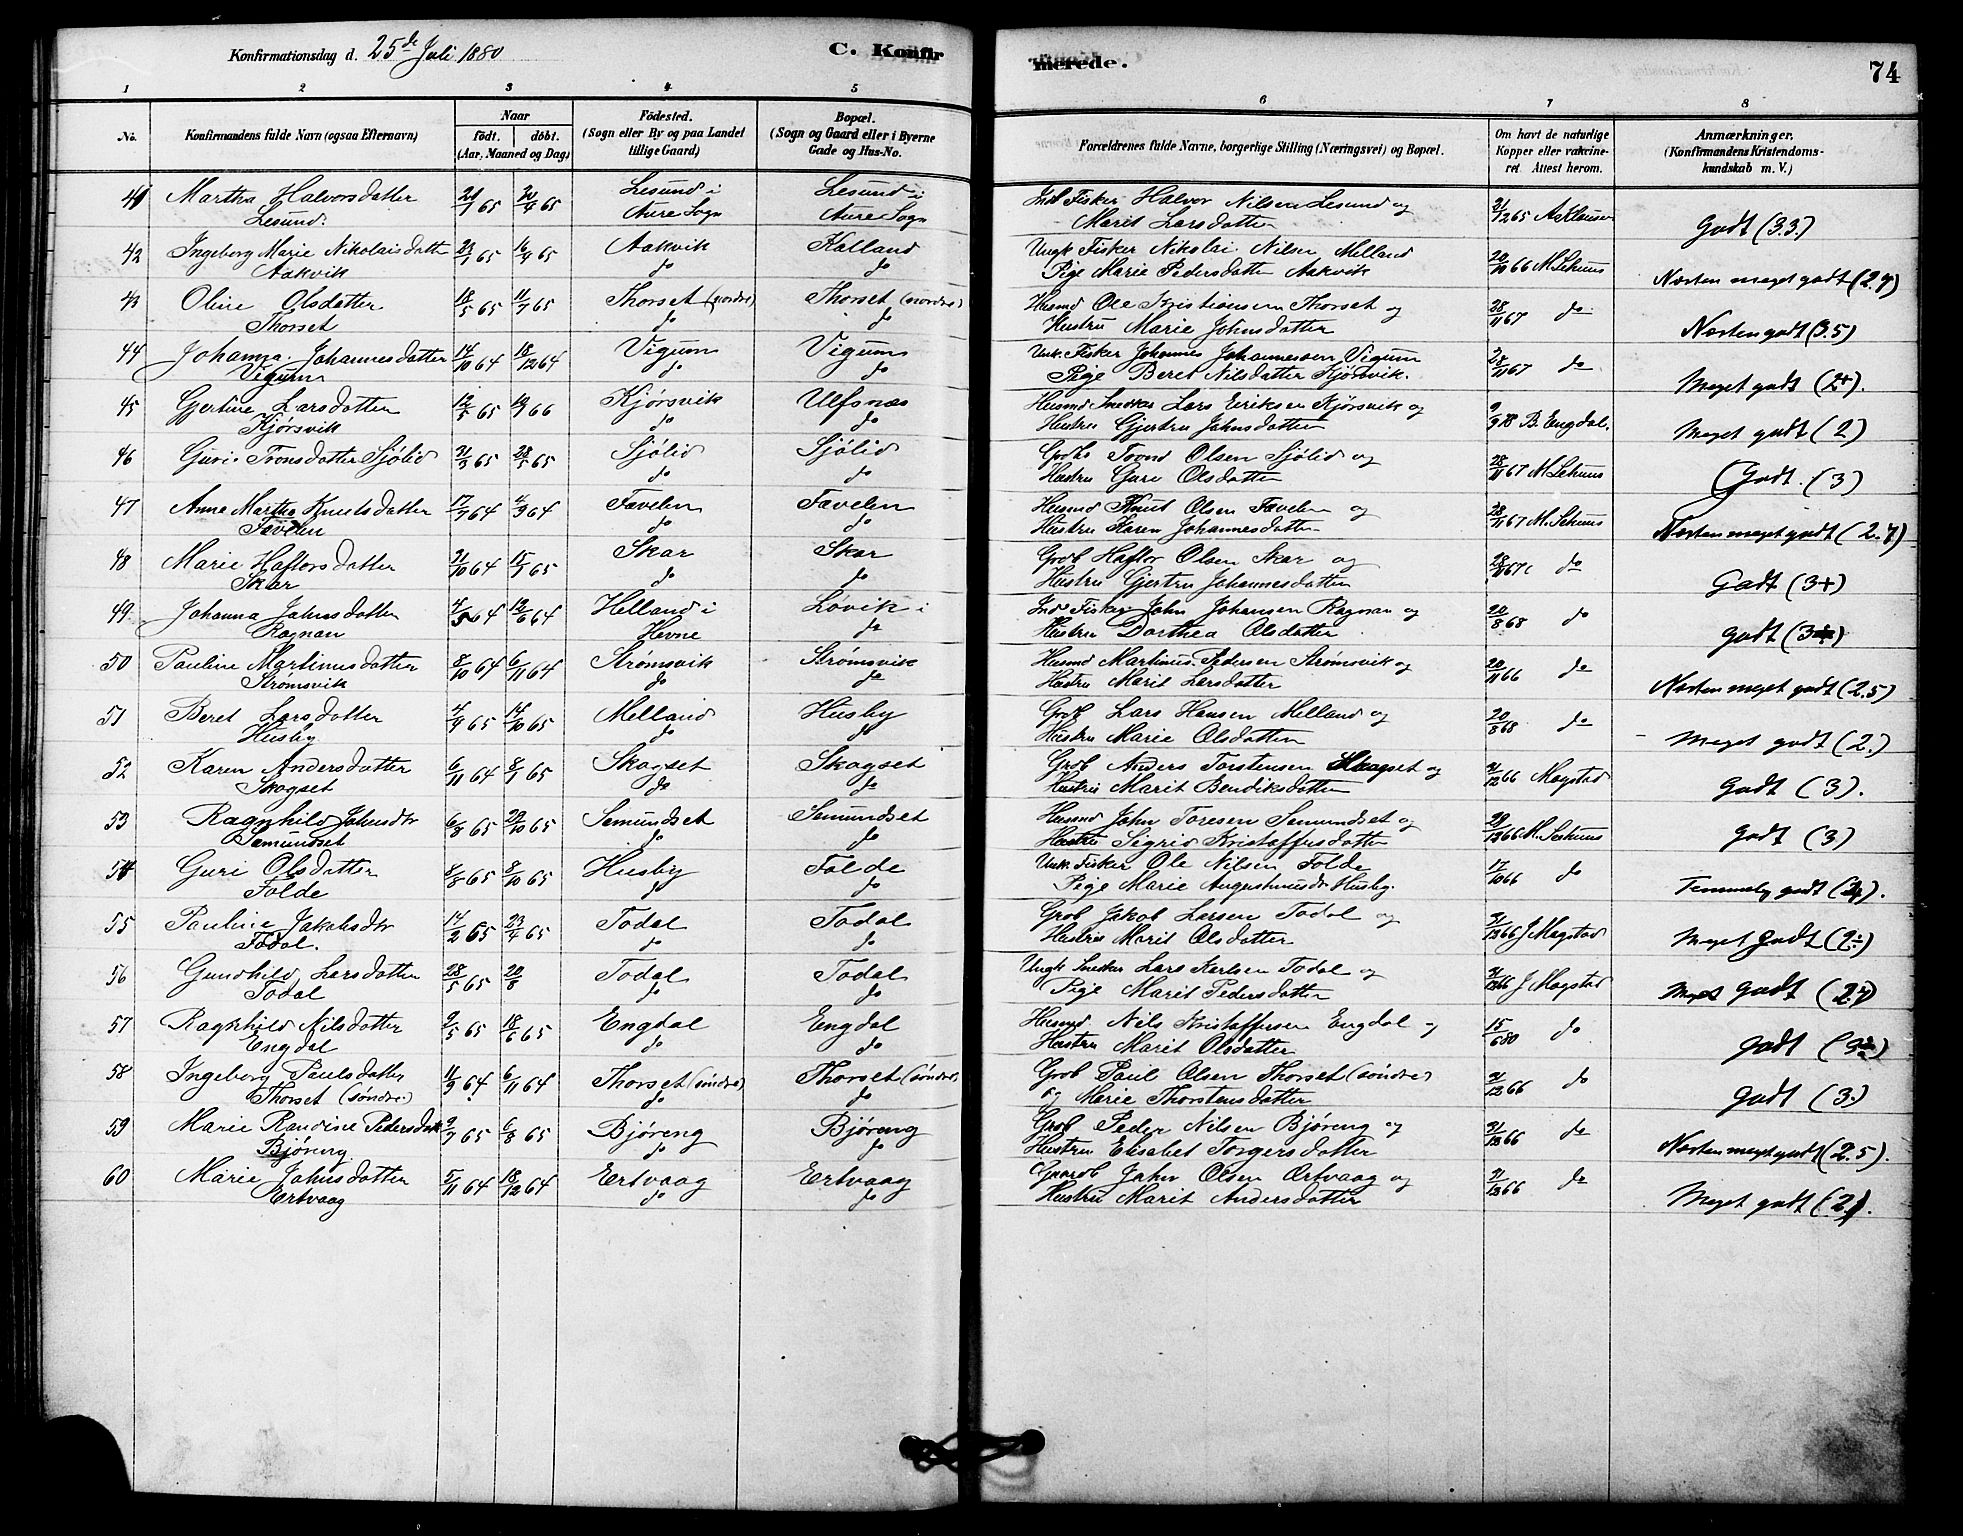 Konfirmationsdag d. 25de Juli 1880
C. Konfirmerede.
74
1 2 3 4 5 6 7 8
No. Konfirmandens fulde Navn (ogsaa Efternavn) Naar født. døbt. (Aar, Maaned og Dag) Fødested. (Sogn eller By og paa Landet tillige Gaard) Bopæl. (Sogn og Gaard eller i Byerne Gade og Hus-No. Forældrenes fulde Navne, borgerlige Stilling (Næringsvei) og Bopæl. Om havt de naturlige Kopper eller vakcineret. Attest herom. Anmærkninger. (Konfirmandens Kristendomskundskab m. V.)
41 Martha Halvorsdatter Lesund i Lesund i Ind. Fisker Halvor Nilsen Lesund og
Lesund. Aure Sogn Aure Sogn Marit Larsdatter Godt (3.3.)
42 Ingeborg Marie Nikolaisdatter 23/1 65 16/4 65 Aakvik Kalland Ungk. Fisker Nikolai Nilsen Melland 20/10 66 M. Sehuus
Aakvik do do Pige Marie Pedersdatter Aakvik Næsten meget godt (2.7)
43 Oline Olsdatter 18/5 65 11/7 65 Thorset (nordre) Thorset (nordre) Husmd Ole Kristiansen Thorset og 28/11 67 do
Thorset do do Hustru Marie Johnsdatter Næsten godt (3.5)
44 Johanna Johannesdatter 14/10 64 18/12 64 Vigum Vigum Unk. Fisker Johannes Johannessen Vigum 28/11 67 do
Vigum do do Pige Beret Nilsdatter Kjørsvik. Meget godt (2+).
45 Gjertine Larsdatter 12/5 65 Kjørsvik Ulfsnæs Husmd Snedker Lars Eriksen Kjørsvik og B. Engdal.
Kjørsvik do do Hustru Gjertru Jahnsdatter Meget godt (2)
46 Guri Tronsdatter Sjølid 21/3 65 28/5 65 Sjølid Sjølid Trond Olsen Sjølid og 28/11 67 M. Sehuus
do do Hustru Guri Olsdatter Godt. (3)
47 Anna Martha Knutsdatter 17/7 64 4/9 64 Tævelen Tævelen Husmd Knut Olsen Tævelen og 28/11 67 M. Sehuus
Tævelen do do Hustru Karen Johannesdatter Næsten meget godt (2.7)
48 Marie Haftorsdatter 21/10 64 15/1 65 Skar Skar Grdb Haftor Olsen Skar og 28/11 67 do
Skar do do Hustru Gjertru Johannesdatter Godt (3+)
49 Johanna Jahnsdatter 12/6 64 Helland i Lovik i Ind. Fisker John Johansen Ragnan og 20/8 68 do
Ragnan Hevne do Hustru Dorthea Olsdatter godt
50 Pauline Martinusdatter 8/10 64 6/11 64 Strømsvik Strømsvik Husmd Martinus Pedersen Strømsvik og 20/11 66 do
Strømsvik do do Hustru Marit Larsdatter Næsten meget godt (2.5)
51 Beret Larsdatter 4/9 65 14/10 65 Melland Husby Grdb Lars Hansen Melland og 20/8 68 do
Husby do do Hustru Marie Olsdatter Meget godt (2.)
52 Karen Andersdatter 6/11 64 8/1 65 Skogset Skogset Grdb Anders Torstensen Skogset og 31/12 66 Mogstad
Skogset do do Hustru Marit Bendiksdatter Godt (3).
53 Ragnhild Jahnsdtr 6/8 65 29/10 65 Semundset Semundset Husmd John Toresen Semundset og 29/12 66 M. Sehuus
Semundset do do Hustru Sigrid Kristoffersdatter godt (3)
54 Guri Olsdatter 8/10 65 Husby Folde Unk. Fisker Ole Nilsen Folde 17/10 66 do
Folde do do Pige Marie Augustinusdr Husby. Temmelig godt
55 Pauline Jakobsdtr 14/2 65 23/4 65 Todal Todal Grdb Jakob Larsen Todal og 31/12 66 J Mogstad
Todal. do do Hustru Marit Olsdatter Meget Godt
56 Gundhild Larsdatter 28/5 65 20/8 Todal Todal Ungk Snedker Lars Karlsen Todal og 31/12 66 J Mogstad
Todal do do Pige Marit Pedersdatter Meget godt
57 Ragnhild Nilsdatter 2/5 65 18/6 65 Engdal Engdal Husmd Nils Kristoffersen Engdal og 15/6 80 do
Engdal do do Hustru Marit Olsdatter godt
58 Ingeborg Paulsdatter 11/9 64 6/11 64 Thorset (søndre) Thorset (søndre) Grdb Paul Olsen Thorset (søndre) 31/12 66 do
Thorset (søndre) do do og Marie Thorstensdatter Godt (3.)
59 Marie Randine Pedersdatter 65 6/8 65 Bjøreng Bjøreng Grdb Peder Nilsen Bjøreng og 31/12 66 do
Bjøreng do do Hustru Elisabet Torgersdatter Næsten meget godt (2.5).
60 Marie Jahnsdatter 5/11 64 18/12 64 Ertvaag Ertvaag Gaardb Jahn Olsen Ertvaag og 31/12 66 do
Ertvaag do do Hustru Marit Andersdatter Meget godt (2.).